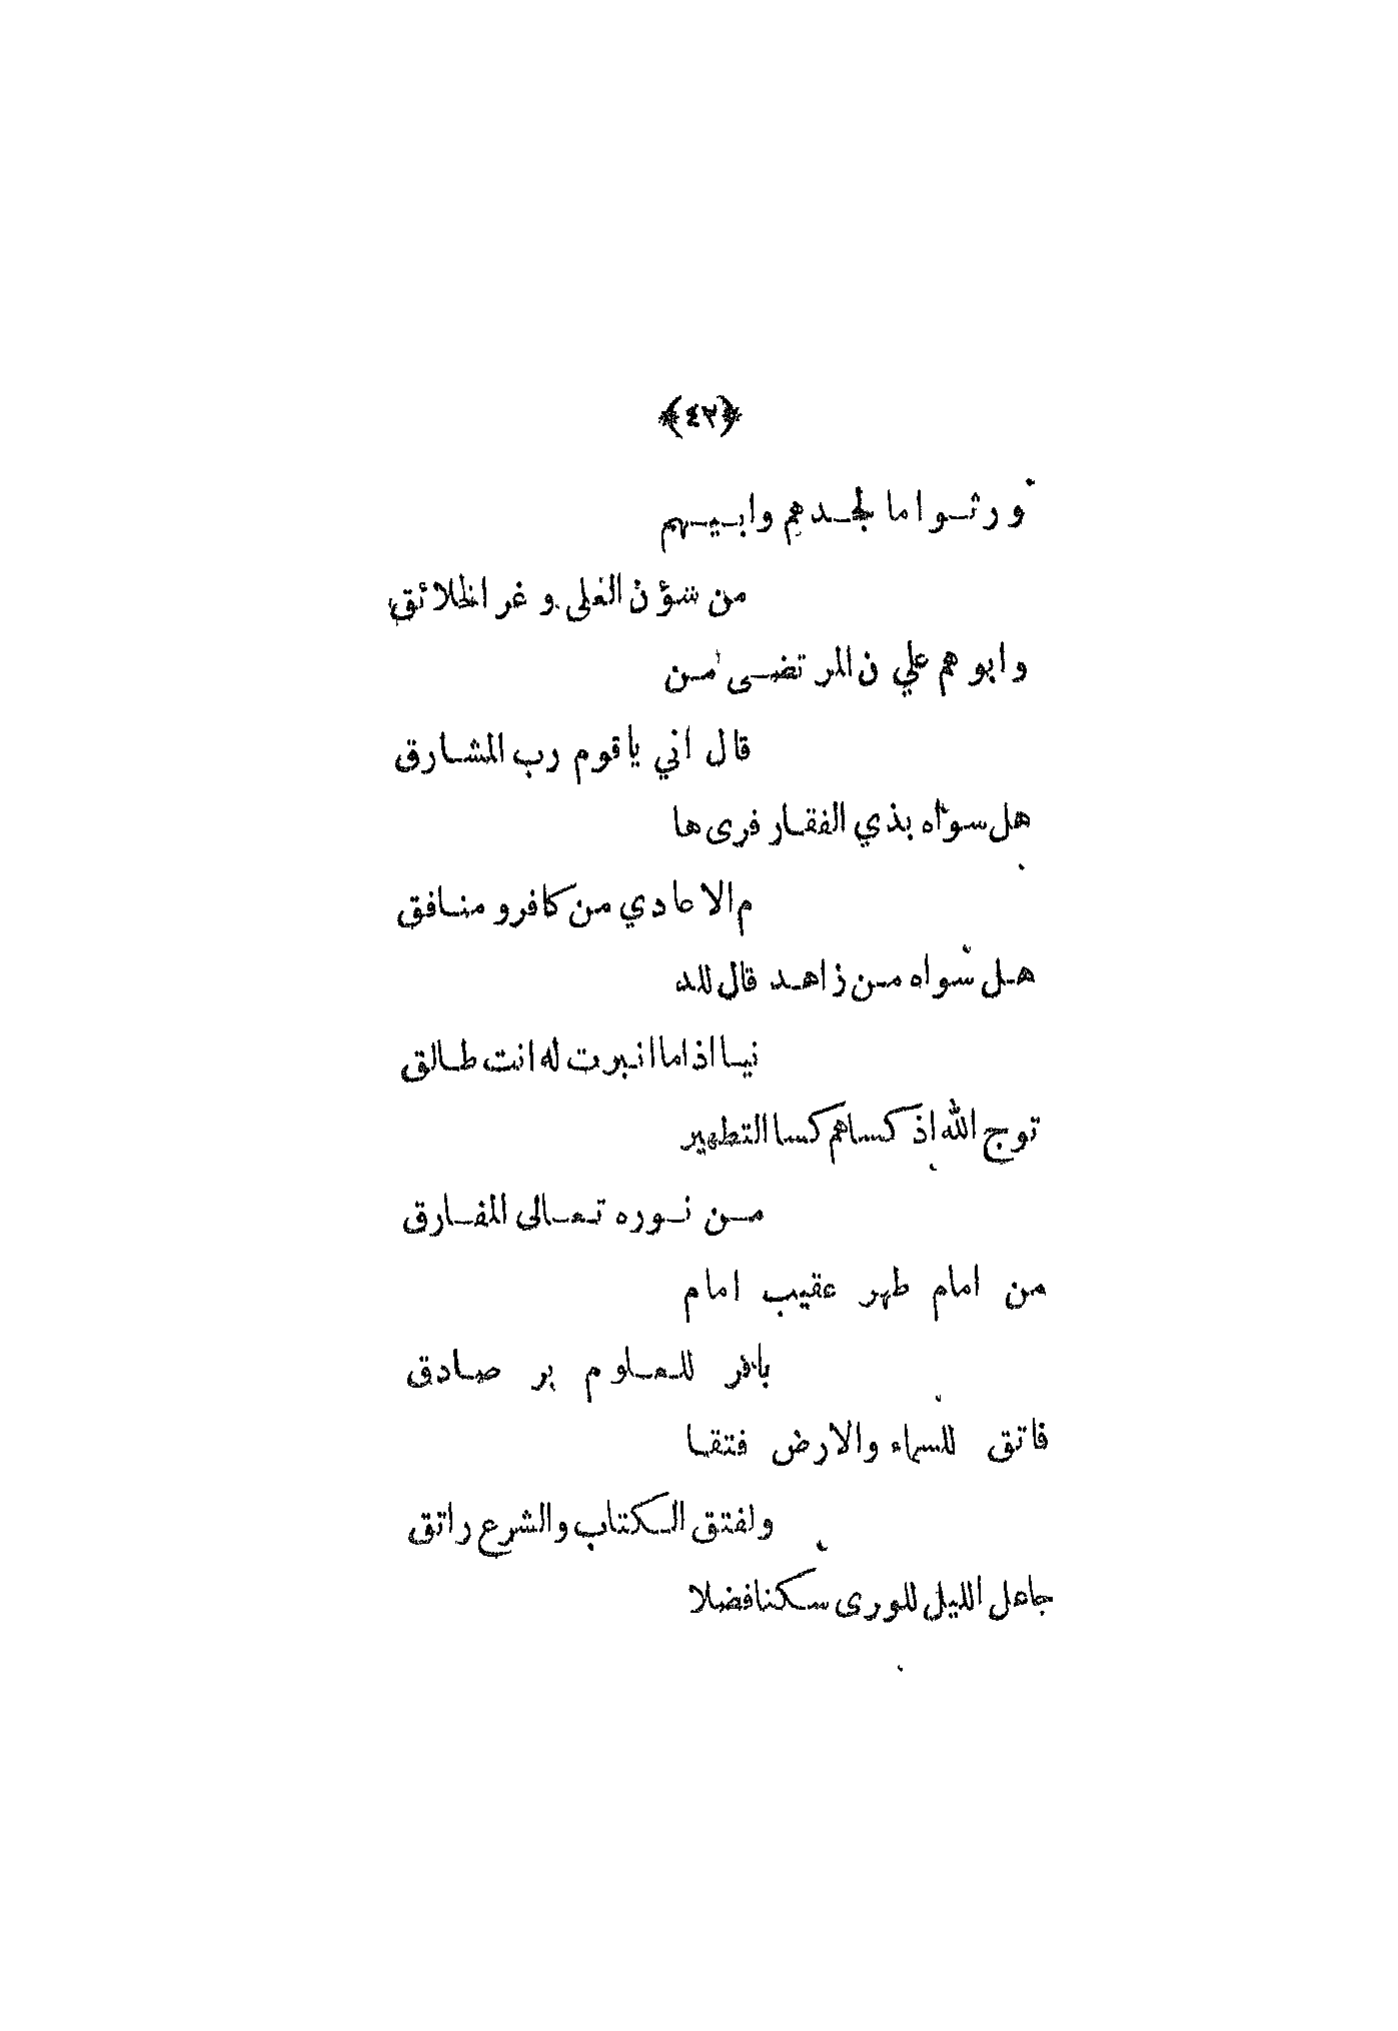 ﴿٤٢﴾
ورثوا ما لجدهم وابيهم
من شؤن العلى وغر الخلائق
وابوهم علي ن المرتضى من
قال اني ياقوم رب المشارق
هل سواه بذي الفقار فرى ها
م الاعادي من كافر و منافق
هل سواه من زاهد قال للد
نيا اذا ما انبرت له انت طالق
توج الله اذ كساهم كسا التطهير
من نوره تعالى المفارق
من امام طهر عقيب امام
باقر للعلوم بر صادق
فاتق للسماء والارض فتقا
ولفتق الكتاب والشرع راتق
جاعل الليل للورى سكنا فضلا